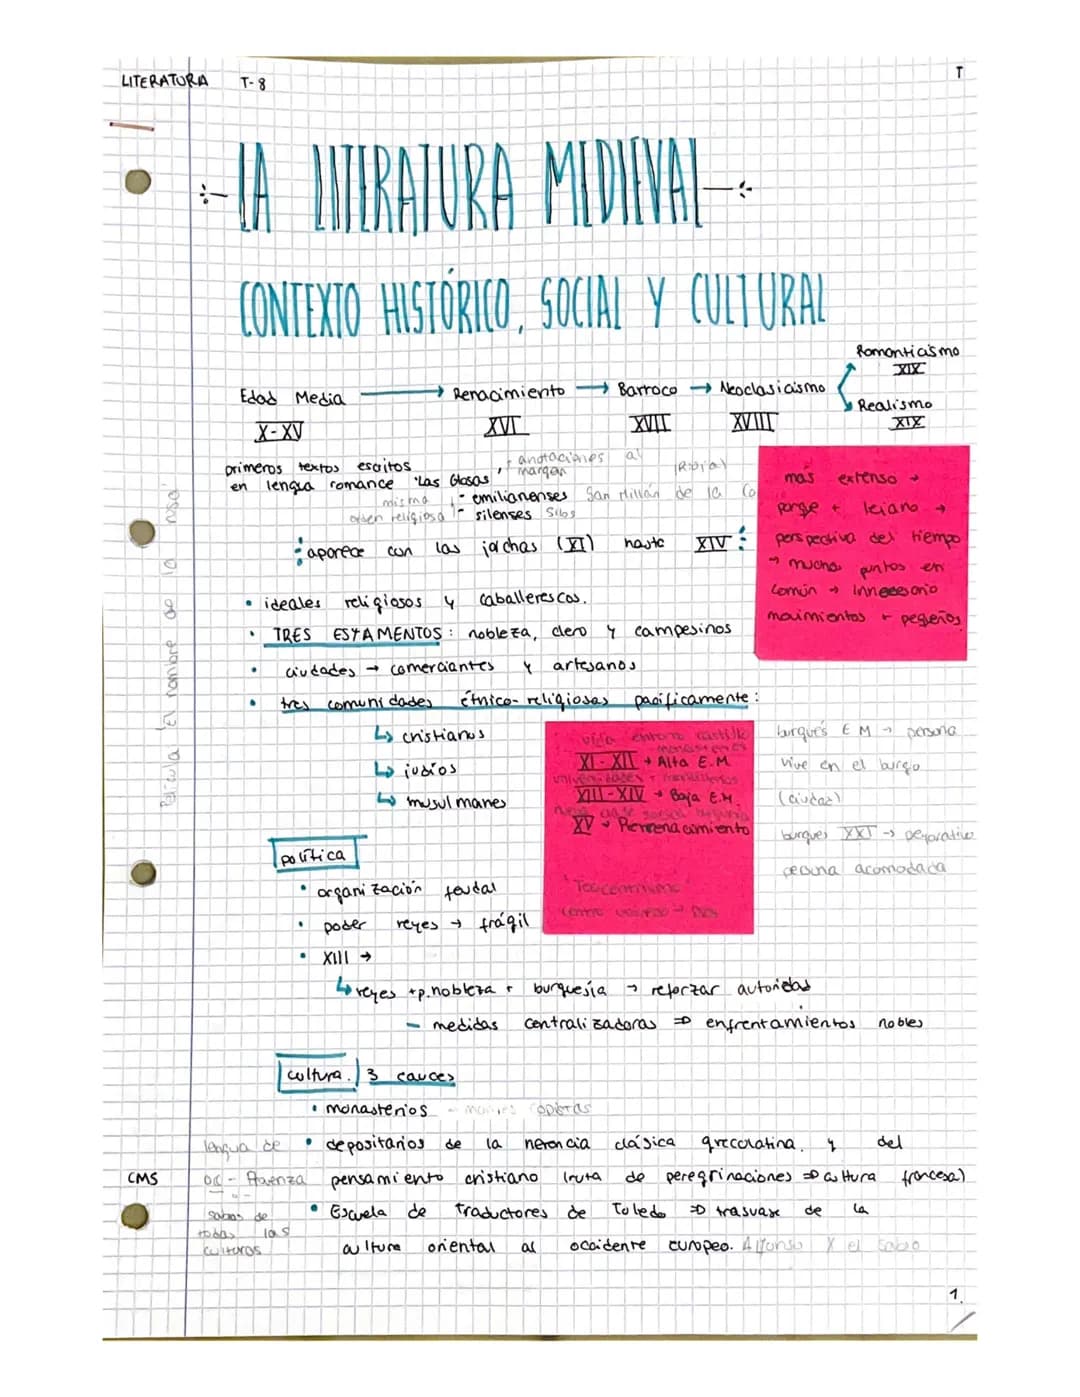 LITERATURA T-8
T
LA LITERATURA MEDIEVAL
CONTEXTO HISTÓRICO, SOCIAL Y CULTURAL
Romanticismo
XIX
Edad Media → Renacimiento → Barroco → Neoclasicismo
Realismo
XIX
X-XV XVI XVII XVIII
primeros textos escritos
en lengua romance 'Las Glosas'
anotaciones al
margen
- emilianenses San Millán de la Co
misma
orden religiosa
- silenses Silos
aparece con las jarchas (XI) hasta XIV
más extenso →
porqe + lejano →
perspectiva del tiempo
→ muchos puntos en
común → innecesario
movimientos + peqeños
Película 'El nombre de la rosa'
• ideales religiosos y caballerescos.
• TRES ESTAMENTOS: nobleza, clero y campesinos
• ciudades → comerciantes y artesanos
• tres comunidades étnico-religiosas pacíficamente:
↳ cristianos
↳ judíos
↳ musulmanes
vida entorno
XI-XII → Alta E.M
XIII-XIV → Baja E.M.
XV → Prerrenacimiento
'Teocentrismo'
centro universo → Dios
burgués E M → persona
vive en el burgo
(ciudad)
burgués XXI → peyorativo
persona acomodada
política
• organización feudal
• poder reyes → frágil
• XIII →
↳ reyes +p.nobleza + burguesía → reforzar autoridad
- medidas centralizadoras ⇒ enfrentamientos nobles
cultura. 3 cauces
• monasterios - monjes copistas
• depositarios de la herencia clásica grecolatina, y del
pensamiento cristiano (ruta de peregrinaciones ⇒ cultura francesa)
lengua de
oc - Provenza
CMS
• Escuela de traductores de Toledo ⇒ trasvase de la
cultura oriental al occidente europeo. Alfonso X el Sabio
sabios de
todas las
culturas
1.